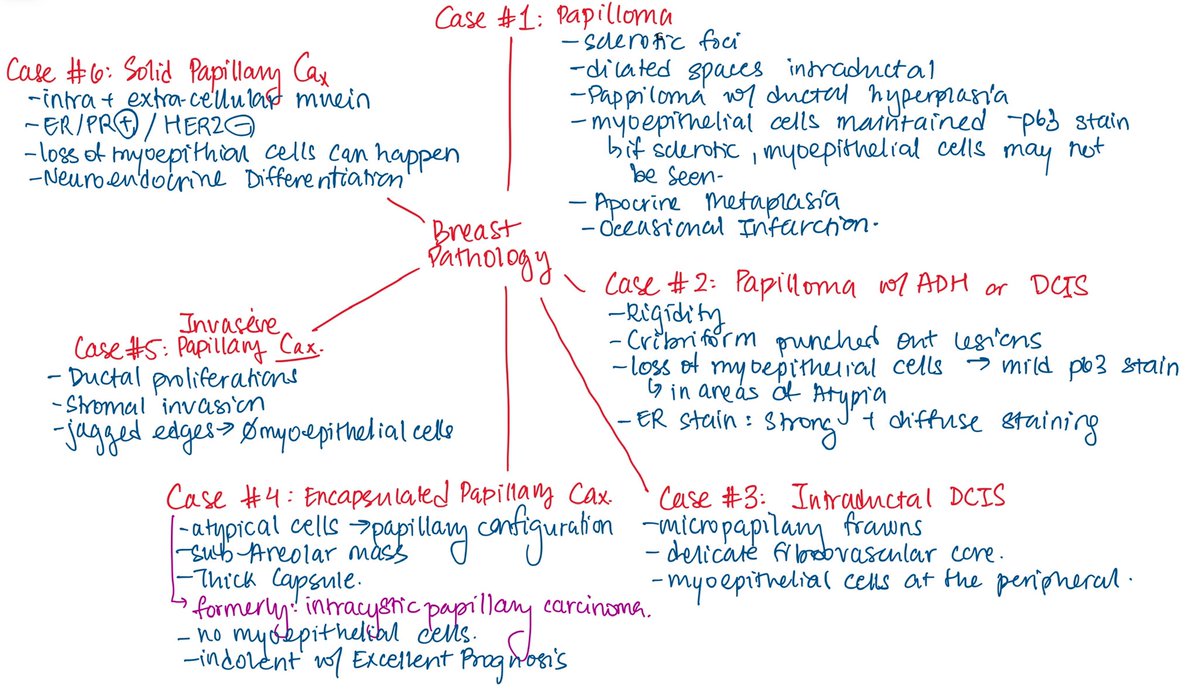 Case #1: Papilloma
- sclerotic foci
- dilated spaces intraductal
- Pappiloma w/ ductal hyperplasia
- myoepithelial cells maintained - p63 stain
↳ if sclerotic, myoepithelial cells may not
be seen.
- Apocrine Metaplasia
- Occasional Infarction.
Case #6: Solid Papillary Cax
- intra + extra-cellular mucin
- ER/PR⊕ / HER2⊖
- loss of myoepithial cells can happen
- Neuroendocrine Differentiation
Breast
Pathology
Case #2: Papilloma w/ ADH or DCIS
- Rigidity
- Cribriform punched out lesions
- loss of myoepithelial cells → mild p63 stain
↳ in areas of Atypia
- ER stain: Strong + diffuse staining
Invasive
Case #5: Papillary Cax.
- Ductal proliferations
- Stromal invasion
- jagged edges → Ø myoepithelial cells
Case #4: Encapsulated Papillary Cax.
- atypical cells → papillary configuration
- sub-Areolar mass
- Thick Capsule.
↳ formerly: intracystic papillary carcinoma.
- no myoepithelial cells.
- indolent w/ Excellent Prognosis
Case #3: Intraductal DCIS
- micropapilary frawns
- delicate fibrovascular core.
- myoepithelial cells at the peripheral.